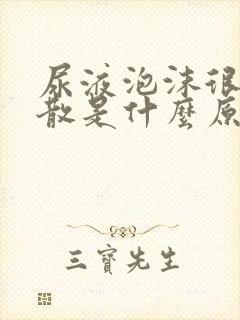 尿液泡沫很
散是什麼原
三寶先生